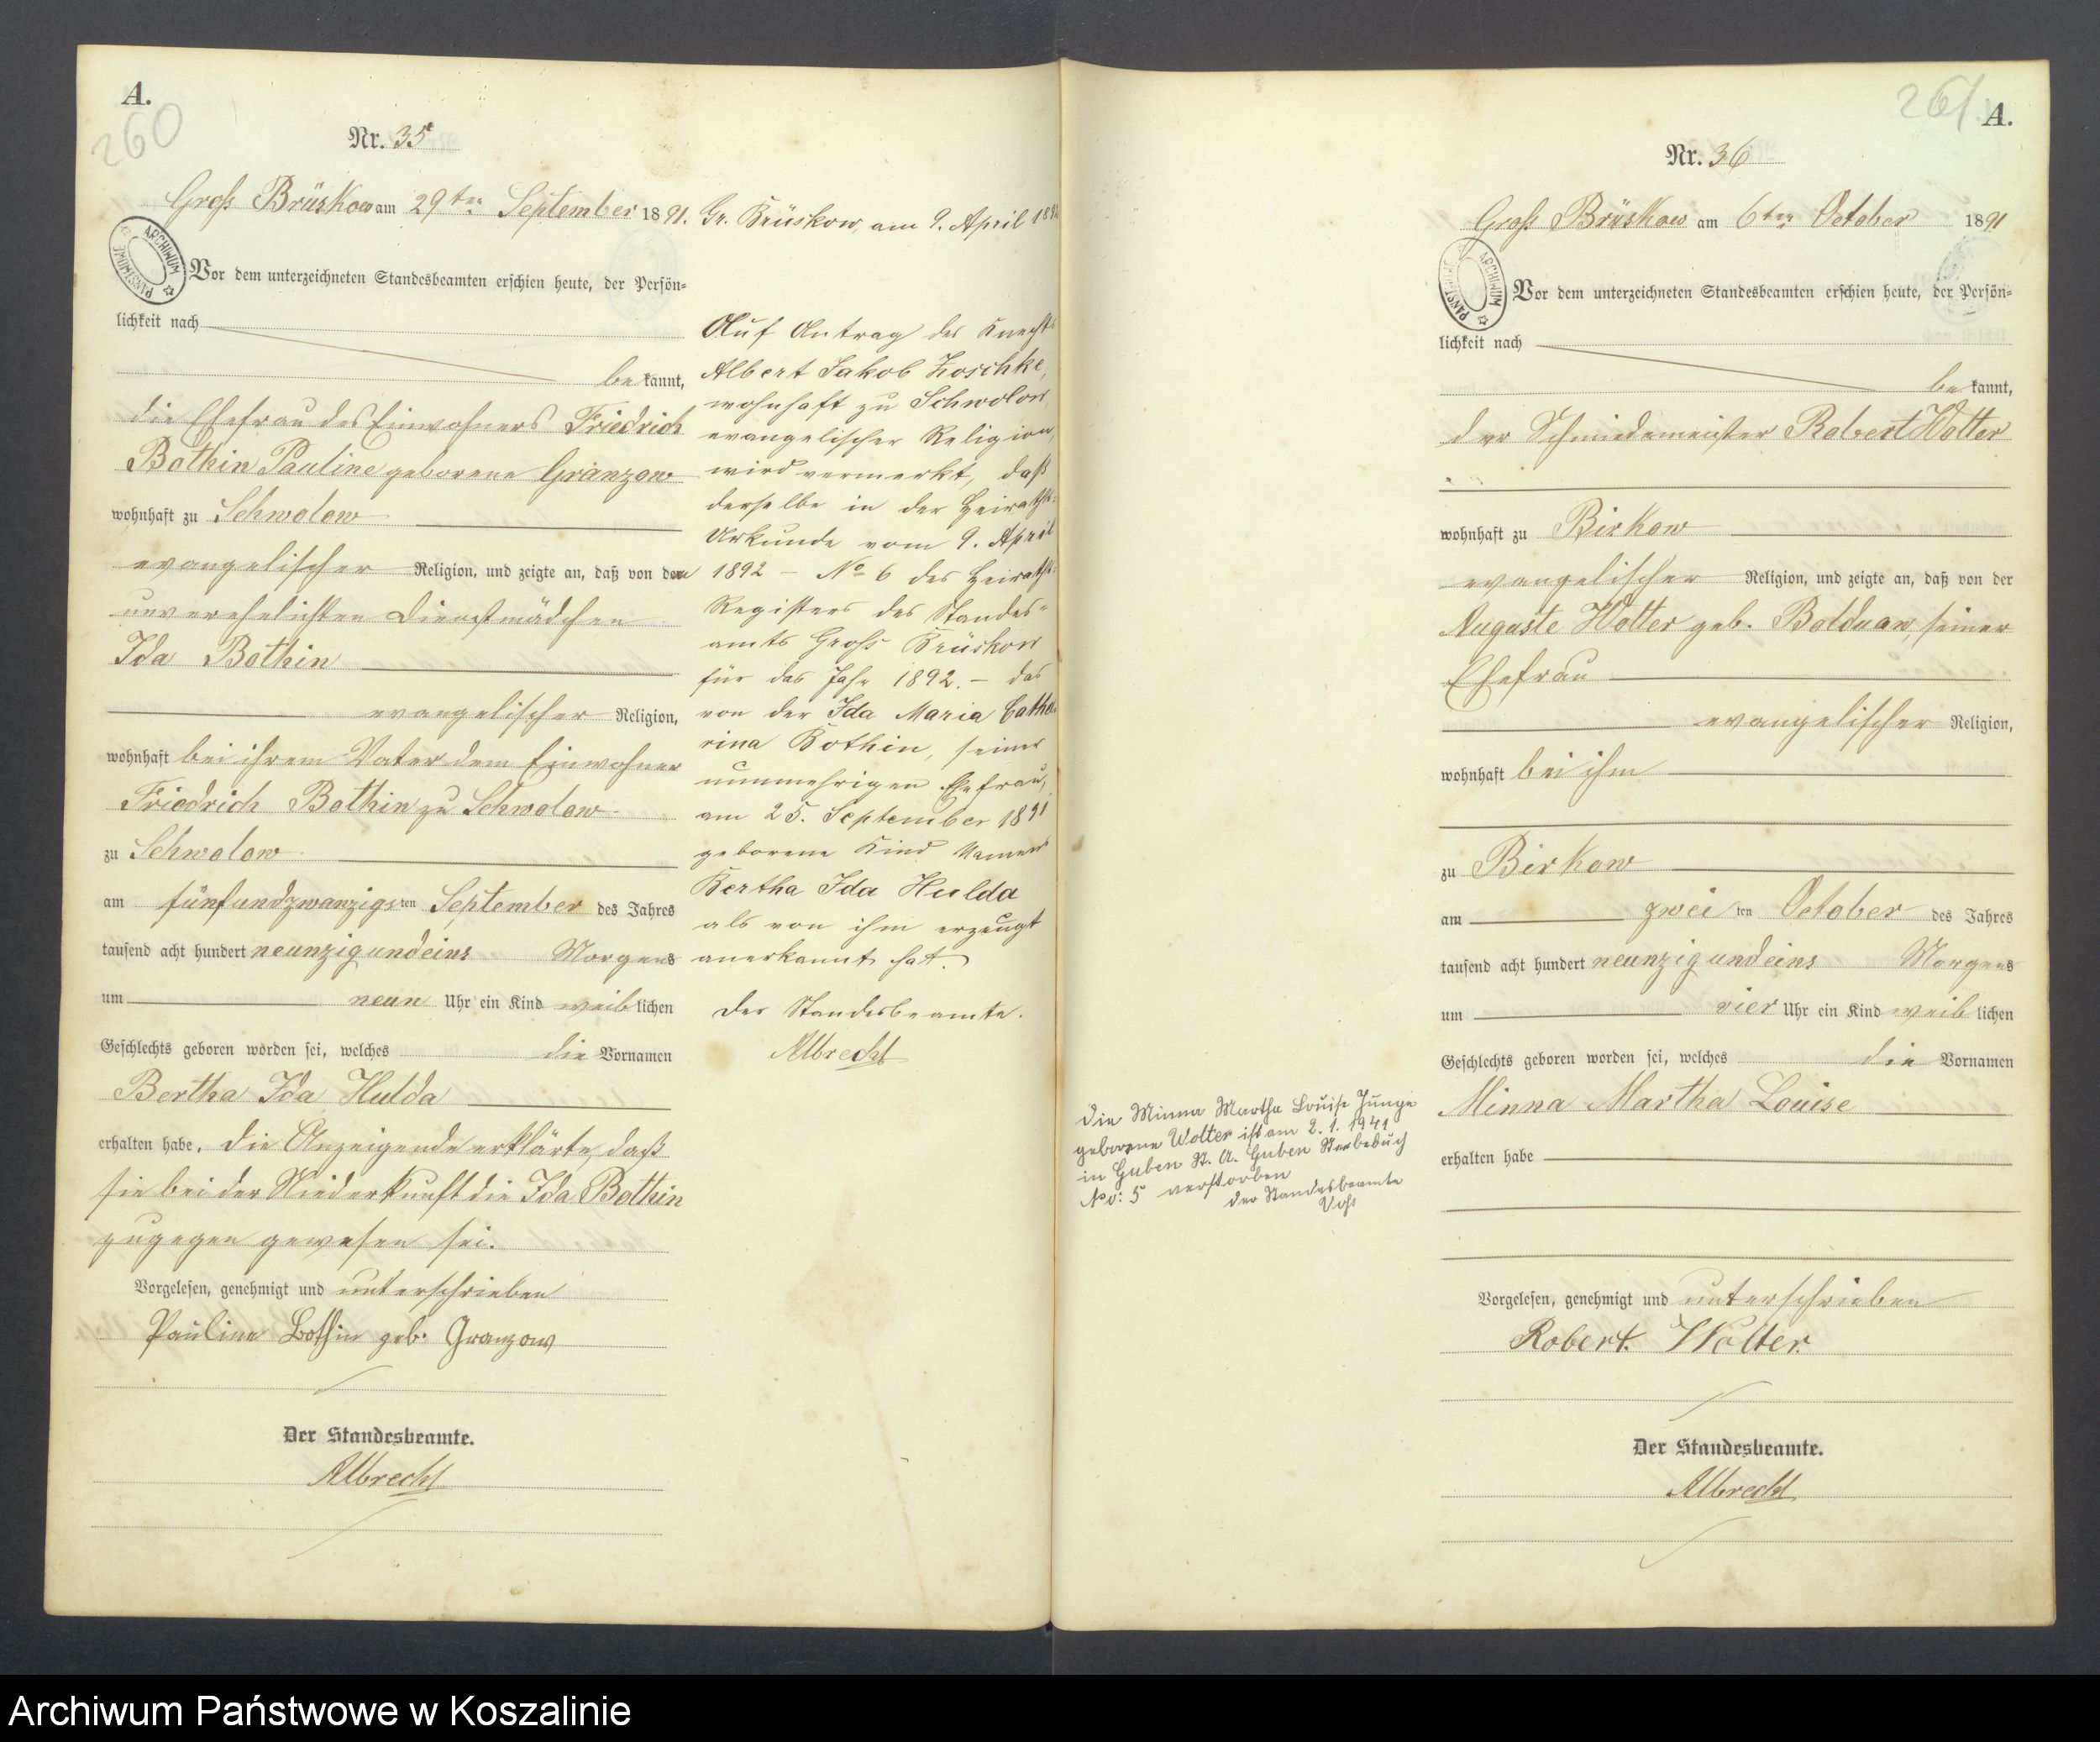 A.
260
Nr. 35
Groß Brüskow am 29ten September 1891.
Vor dem unterzeichneten Standesbeamten erschien heute, der Persön-
lichkeit nach
bekannt,
die Ehefrau des Einwohners Friedrich
Bothin Pauline geborene Granzow
wohnhaft zu Schwolow
evangelischer Religion, und zeigte an, daß von dem
unverehelichten Dienstmädchen
Ida Bothin
evangelischer Religion,
wohnhaft bei ihrem Vater dem Einwohner
Friedrich Bothin zu Schwolow
zu Schwolow
am fünfundzwanzigsten September des Jahres
tausend acht hundert neunzig und eins Morgens
um neun Uhr ein Kind weiblichen
Geschlechts geboren worden sei, welches die Vornamen
Bertha Ida Hulda
erhalten habe. Die Anzeigende erklärte, daß
sie bei der Niederkunft die Ida Bothin
zugegen gewesen sei.
Vorgelesen, genehmigt und unterschrieben
Pauline Bothin geb. Granzow
Der Standesbeamte.
Albrecht
Gr. Brüskow, am 9. April 1892
Auf Antrag des Knechts
Albert Jakob Zoschke,
wohnhaft zu Schwolow
evangelischer Religion,
wird vermerkt, daß
derselbe in der Heiraths-
Urkunde vom 9. April
1892 – No 6 des Heiraths-
Registers des Standes-
amts Groß Brüskow
für das Jahr 1892. – das
von der Ida Maria Cathe-
rina Bothin, seiner
nunmehrigen Ehefrau,
am 25. September 1891
geborene Kind Namens
Bertha Ida Hulda
als von ihm erzeugt
anerkannt hat.
Der Standesbeamte.
Albrecht
261
A.
Nr. 36
Groß Brüskow am 6ten October 1891
Vor dem unterzeichneten Standesbeamten erschien heute, der Persön-
lichkeit nach
bekannt,
der Schmiedemeister Robert Wolter
wohnhaft zu Birkow
evangelischer Religion, und zeigte an, daß von der
Auguste Wolter geb. Bolduan, seiner
Ehefrau
evangelischer Religion,
wohnhaft bei ihm
zu Birkow
am zweiten October des Jahres
tausend acht hundert neunzig und eins Morgens
um vier Uhr ein Kind weiblichen
Geschlechts geboren worden sei, welches die Vornamen
Minna Martha Louise
erhalten habe
Vorgelesen, genehmigt und unterschrieben
Robert Wolter.
Der Standesbeamte.
Albrecht
Die Minna Martha Louise Junge
geborene Wolter ist am 2. 1. 1941
in Guben St. A. Guben Sterbebuch
No: 5 verstorben
der Standesbeamte
ARCHIWUM PAŃSTWOWE
ARCHIWUM PAŃSTWOWE
Archiwum Państwowe w Koszalinie